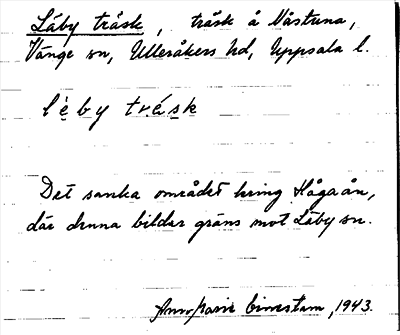 Läby träsk, träsk å Västuna,
Vänge sn, Ulleråkers hd, Uppsala l.
lèby trásk
Det sanka området kring Hågaån,
där denna bildar gräns mot Läby sn.
1943.